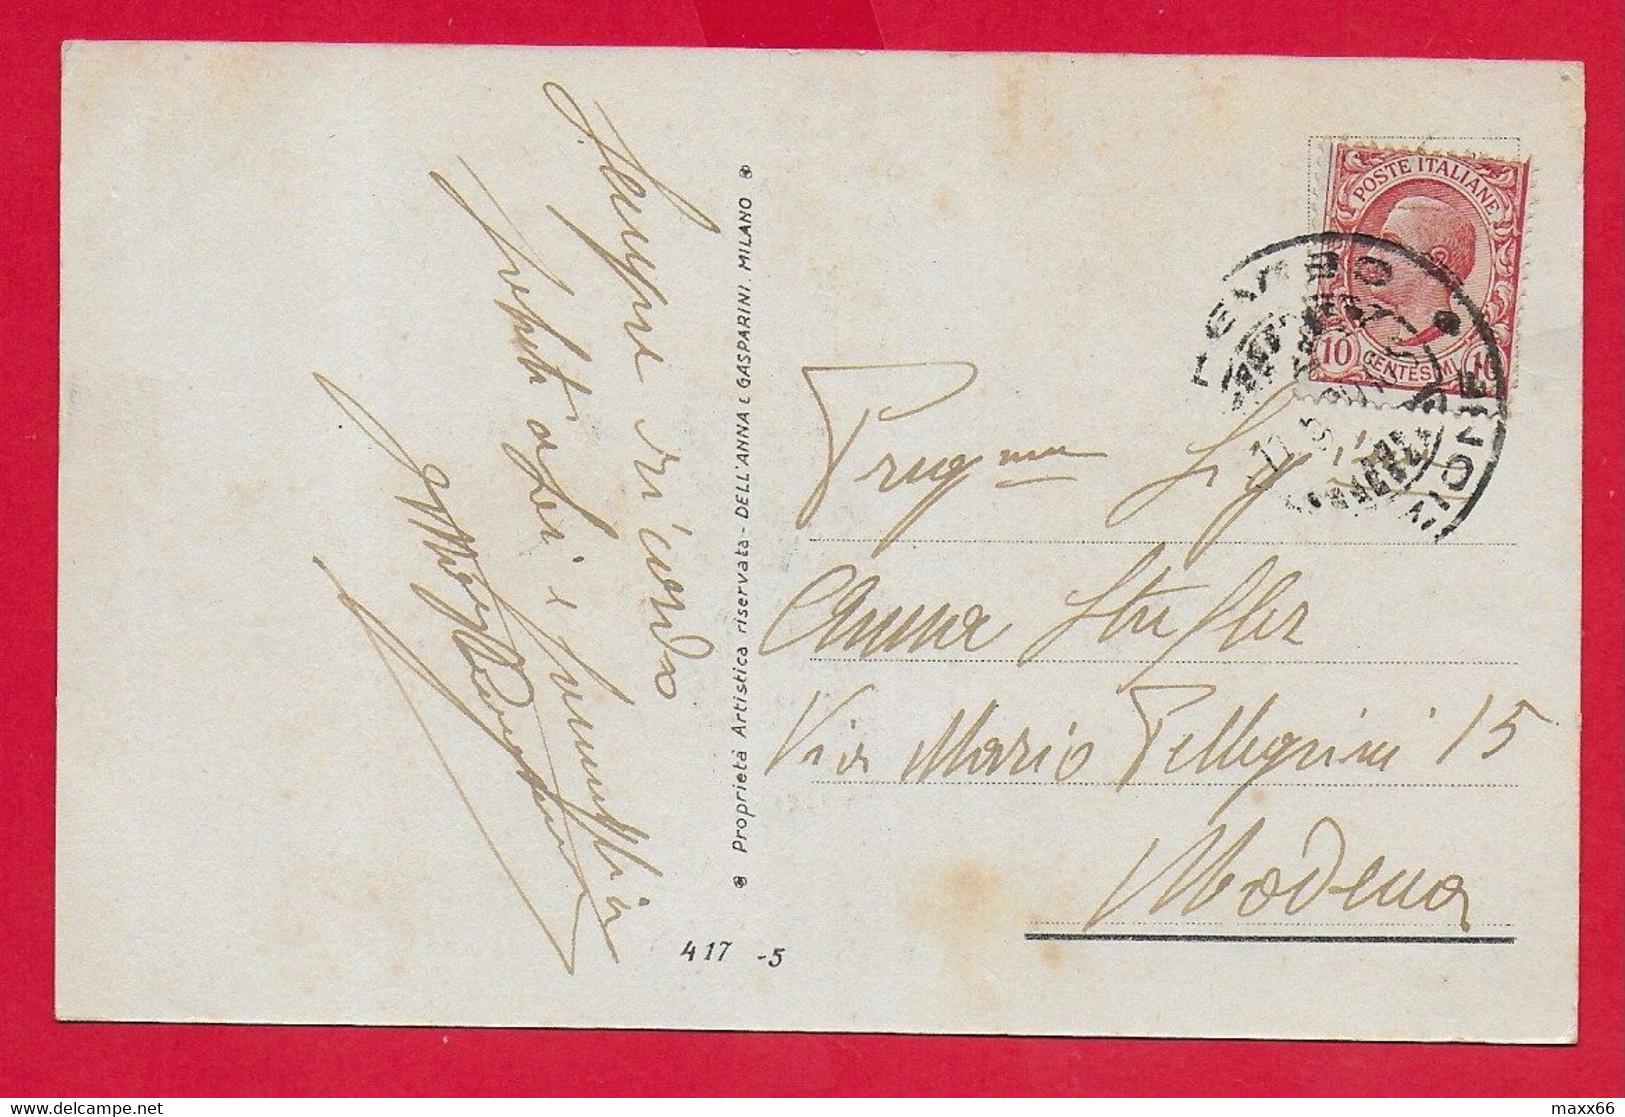 Sempre ricordo
a Lei e famiglia
Proprietà Artistica riservata - DELL'ANNA E GASPARINI. MILANO
417 -5
POSTE ITALIANE
10 CENTESIMI 10
Preg.ma Sig.
Anna
Via Mario Pellegrini 15
Modena
maxx66